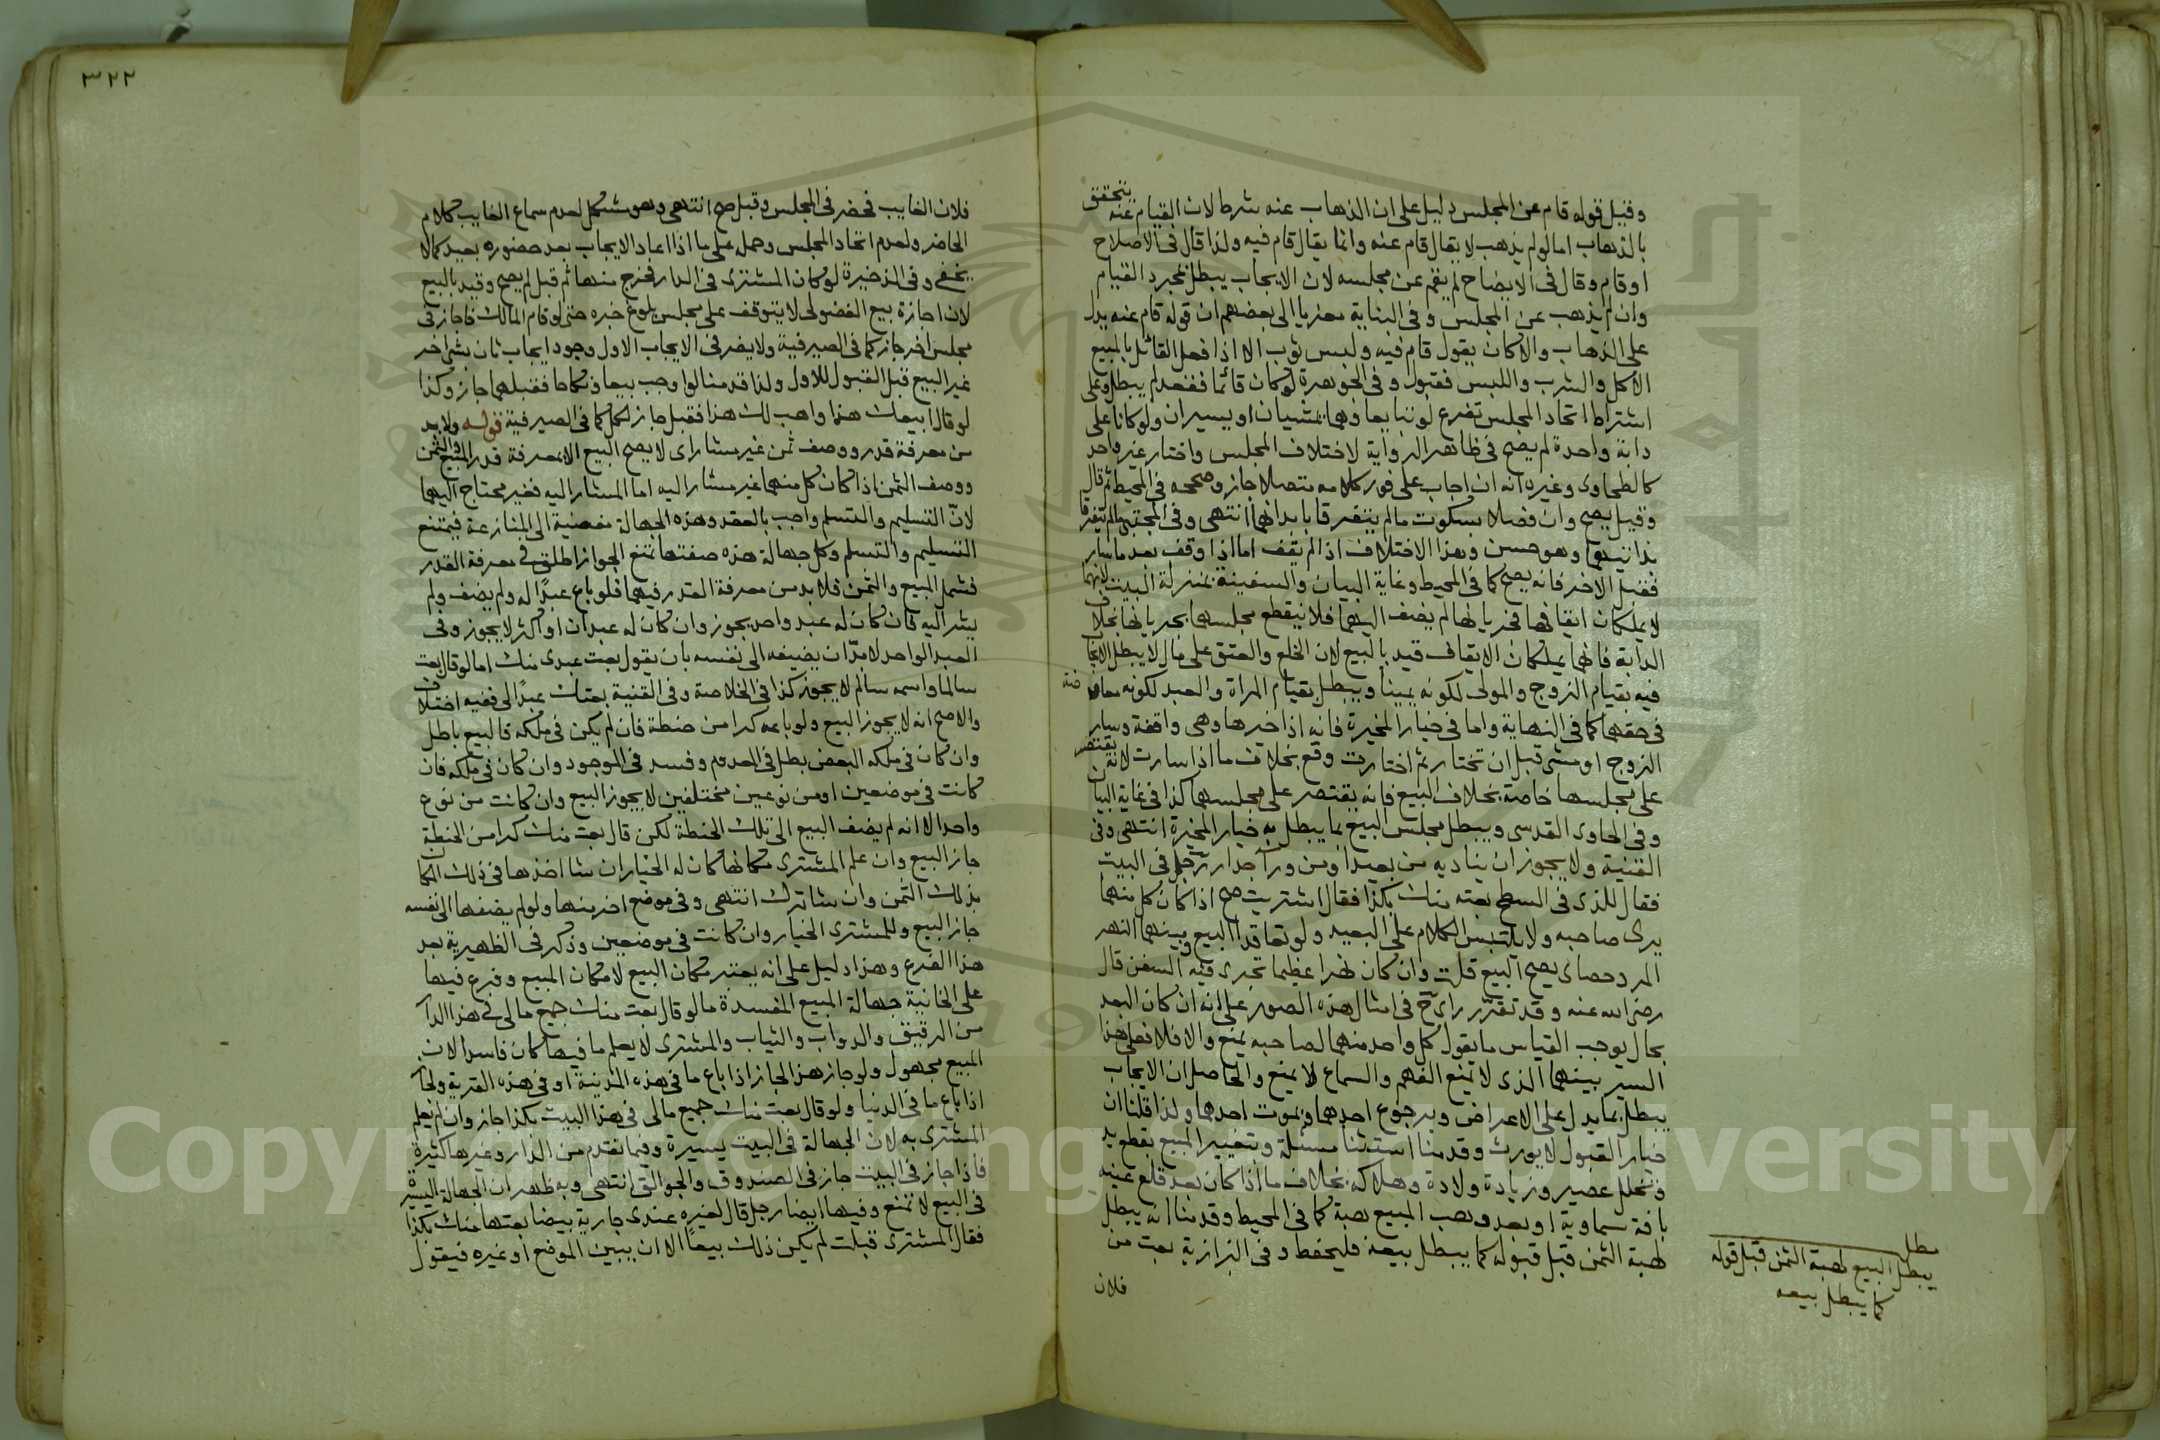 وقيل قوله قام عن المجلس دليل على ان الذهاب عنه شرط لان القيام عنه يتحقق
بالذهاب اما لو لم يذهب لا يقال قام عنه وانما يقال قام فيه ولذا قال في الاصلاح
او قام وقال في الايضاح لم يقم عن مجلسه لان الايجاب يبطل بمجرد القيام
وان لم يذهب عن المجلس وفي البناية معزيا الى بعضهم ان قوله قام عنه يدل
على الذهاب والا كان يقول قام فيه وليس ثوب الا اذا فعل القائل بالمبيع
الاكل والشرب واللبس فقبول وفي الجوهرة لو كان قائما فقعد لم يبطل وعلى
اشتراط اتحاد المجلس تفرع لو تبايعا وهما يمشيان او يسيران ولو كانا على
دابة واحدة لم يصح في ظاهر الرواية لاختلاف المجلس واختار غير واحد
كالطحاوي وغيره انه ان اجاب على فور كلامه متصلا جاز وصححه في المحيط ثم قال
وقيل يصح وان فصلا بسكوت ما لم يتفرقا بابدانهما انتهى وفي المجتبى ما لم يتفرقا
بذاتيهما وهو حسن وهذا الاختلاف اذا لم يقف اما اذا وقف بعد ما سار
فقبل الاخر فانه يصح كما في المحيط وغاية البيان والسفينة بمنزلة البيت لانهما
لا يملكان ايقافها فجريانها لم يضف اليهما فلا ينقطع مجلسهما بجريانها بخلاف
الدابة فانهما يملكان الايقاف قيد بالبيع لان الخلع والعتق على مال لا يبطل الايجاب
فيه بقيام الزوج والمولى لكونه يمينا ويبطل بقيام المراة والعبد لكونه معاوضة
في حقهما كما في النهاية واما في خيار المخيرة فانه اذا خيرها وهي واقفة وسار
الزوج او مشى قبل ان تختار ثم اختارت وقع بخلاف ما اذا سارت لانه يقتصر
على مجلسها خاصة بخلاف البيع فانه يقتصر على مجلسهما كذا في غاية البيان
وفي الحاوي القدسي ويبطل مجلس البيع بما يبطل به خيار المخيرة انتهى وفي
القنية ولا يجوز ان يناديه من بعيد او من وراء جدار رجل في البيت
فقال للذي في السطح بعته منك بكذا فقال اشتريت صح اذا كان كل منهما
يرى صاحبه ولا يلتبس الكلام على البعيد ولو تعاقدا البيع وبينهما النهر
المردحصاي يصح البيع قلت وان كان نهرا عظيما تجري فيه السفن قال
رضي الله عنه وقد تقرر راي في امثال هذه الصور على انه ان كان البعد
بحال يوجب القياس ما يقول كل واحد منهما لصاحبه يمنع والا فلا فعلى هذا
الستر بينهما الذي لا يمنع الفهم والسماع لا يمنع والحاصل ان الايجاب
يبطل بما يدل على الاعراض وبرجوع احدهما وبموت احدهما ولذا قلنا ان
خيار القبول لا يورث وقدمنا استثنا مسئلة وبتغيير المبيع بقطع يد
وتخلل عصير وزيادة ولادة وهلاكه بخلاف ما اذا كان بعد قلع عينه
بافة سماوية او بعد وهب المبيع هبة كما في المحيط وقدمنا انه يبطل
هبة الثمن قبل قبوله كما يبطل بيعه فليحفظ وفي البزازية بعت من
فلان
مطل
يبطل البيع بهبة الثمن قبل قوله
كما يبطل بيعه
٣٢٢
فلان الغايب فحضر في المجلس وقبل صح انتهى وهو مشكل لعدم سماع الغايب كلام
الحاضر ولعدم اتحاد المجلس وحمل على ما اذا اعاد الايجاب بعد حضوره بعيد كما لا
يخفى وفي الذخيرة لو كان المشتري في الدار فخرج منها ثم قبل لم يصح وقيد بالبيع
لان اجازة بيع الفضولي لا يتوقف على مجلس بلوغ خبره حتى لو قام المالك فاجاز في
مجلس اخر جاز كما في الصيرفية ولا يضر في الايجاب الاول وجود ايجاب ثان بشي اخر
غير البيع قبل القبول للاول ولذا قدمنا لو اوجب بيعا ونكاحا فقبلهما جاز وكذا
لو قال ابيعك هذا واهب لك هذا فقبل جاز الكل كما في الصيرفية قوله ولا بد
من معرفة قدر ووصف ثمن غير مشار اي لا يصح البيع الا بمعرفة قدر المبيع والثمن
ووصف الثمن اذا كان كل منهما غير مشار اليه اما المشار اليه فغير محتاج اليهما
لان التسليم والتسلم واجب بالعقد وهذه الجهالة مفضية الى المنازعة فيمتنع
التسليم والتسلم وكل جهالة هذه صفتها تمنع الجواز اطلق في معرفة القدر
فشمل المبيع والثمن فلا بد من معرفة القدر فيهما فلو باع عبدا له ولم يصف ولم
يشر اليه فان كان له عبد واحد يجوز وان كان له عبدان او اكثر لا يجوز وفي
العبد الواحد لا بد ان يضيفه الى نفسه بان يقول بعت عبدي منك اما لو قال بعت
سالما واسمه سالم لا يجوز كذا في الخلاصة وفي القنية بعتك عبدا لي ففيه اختلاف
والاصح انه لا يجوز البيع ولو باعه كرا من حنطة فان لم يكن في ملكه فالبيع باطل
وان كان في ملكه البعض بطل في المعدوم وفسد في الموجود وان كان في ملكه فان
كانت في موضعين او من نوعين مختلفين لا يجوز البيع وان كانت من نوع
واحد الا انه لم يضف البيع الى تلك الحنطة لكن قال بعت منك كرا من الحنطة
جاز البيع وان علم المشتري مكانها كان له الخيار ان شا اخذها في ذلك المكان
بذلك الثمن وان شا ترك انتهى وفي موضع اخر منها ولو لم يضفها الى نفسه
جاز البيع وللمشتري الخيار وان كانت في موضعين وذكر في الظهيرية بعد
هذا الفرع وهذا دليل على انه يعتبر مكان البيع لا مكان المبيع وفرع فيها
على الخانية جهالة المبيع المفسدة ما لو قال بعت منك جميع مالي في هذا الدار
من الرقيق والدواب والثياب والمشتري لا يعلم ما فيها كان فاسدا لان
المبيع مجهول ولو جاز هذا لجاز اذا باع ما في هذه المدينة او في هذه القرية ولجاز
اذا باع ما في الدنيا ولو قال بعت منك جميع مالي في هذا البيت بكذا جاز وان لم يعلم
المشتري به لان الجهالة في البيت يسيرة وفيما تقدم من الدار وغيرها كثيرة
فاذا جاز في البيت جاز في الصندوق والجوالق انتهى وبه ظهر ان الجهالة اليسيرة
في البيع لا تمنع وفيها ايضا رجل قال لغيره عندي جارية بيضا بعتها منك بكذا
فقال المشتري قبلت لم يكن ذلك بيعا الا ان يبين الموضع او غيره فيقول
Copyright © King Saud University